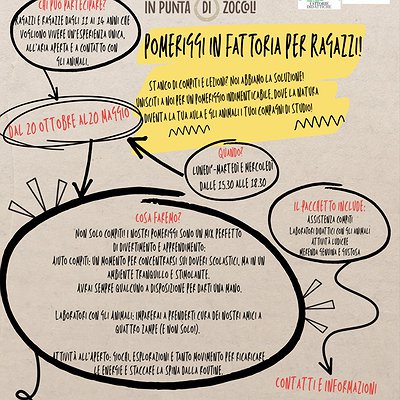 CHI PUÒ PARTECIPARE?
RAGAZZI E RAGAZZE DAGLI 11 AI 14 ANNI CHE
VOGLIONO VIVERE UN'ESPERIENZA UNICA,
ALL'ARIA APERTA E A CONTATTO CON
GLI ANIMALI.
IN PUNTA DI ZOCCOLI
FATTORIE
DIDATTICHE
POMERIGGI IN FATTORIA PER RAGAZZI!
STANCO DI COMPITI E LEZIONI? NOI ABBIAMO LA SOLUZIONE!
UNISCITI A NOI PER UN POMERIGGIO INDIMENTICABILE, DOVE LA NATURA
DIVENTA LA TUA AULA E GLI ANIMALI I TUOI COMPAGNI DI STUDIO!
DAL 20 OTTOBRE AL 20 MAGGIO
QUANDO?
LUNEDI'-MARTEDÌ E MERCOLEDÌ
DALLE 15.30 ALLE 18.30
COSA FAREMO?
NON SOLO COMPITI! I NOSTRI POMERIGGI SONO UN MIX PERFETTO
DI DIVERTIMENTO E APPRENDIMENTO:
AIUTO COMPITI: UN MOMENTO PER CONCENTRARSI SUI DOVERI SCOLASTICI, MA IN UN
AMBIENTE TRANQUILLO E STIMOLANTE.
AVRAI SEMPRE QUALCUNO A DISPOSIZIONE PER DARTI UNA MANO.
LABORATORI CON GLI ANIMALI: IMPARERAI A PRENDERTI CURA DEI NOSTRI AMICI A
QUATTRO ZAMPE (E NON SOLO!).
ATTIVITÀ ALL'APERTO: GIOCHI, ESPLORAZIONI E TANTO MOVIMENTO PER RICARICARE
LE ENERGIE E STACCARE LA SPINA DALLA ROUTINE.
IL PACCHETTO INCLUDE:
ASSISTENZA COMPITI
LABORATORI DIDATTICI CON GLI ANIMALI
ATTIVITÀ LUDICHE
MERENDA GENUINA E GUSTOSA
CONTATTI E INFORMAZIONI